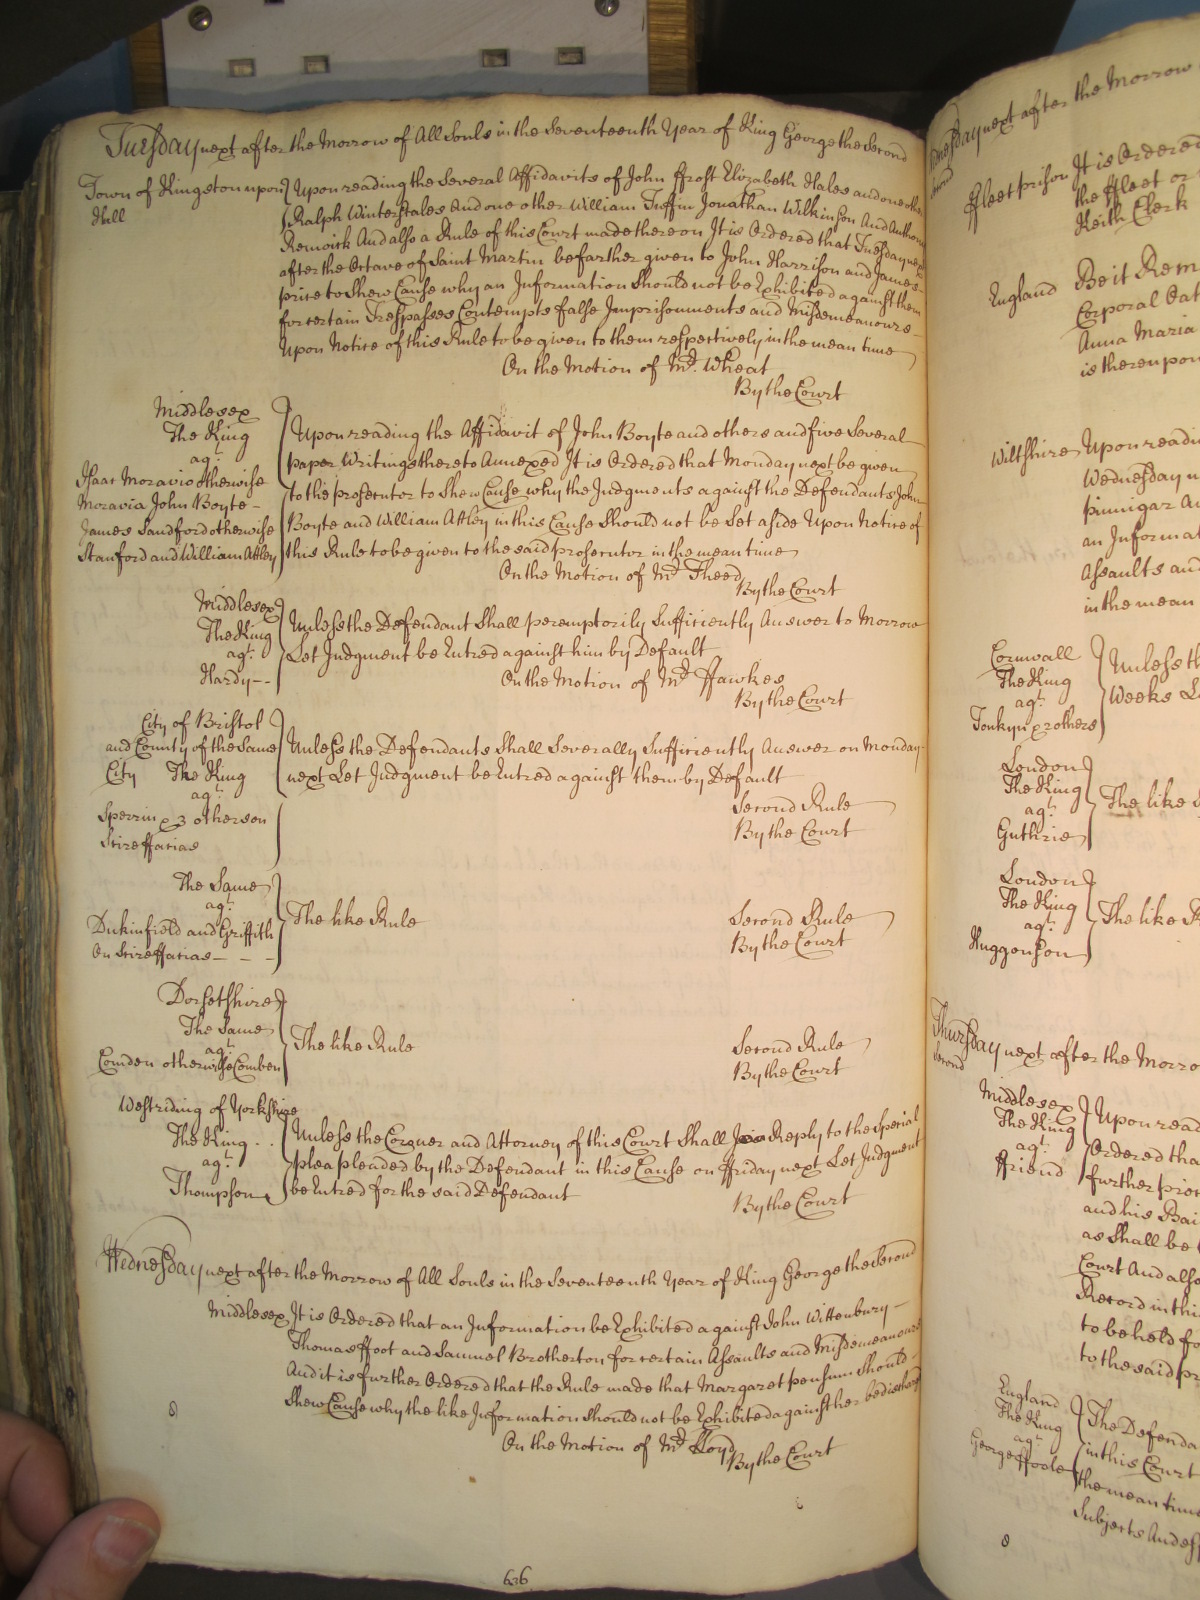 Tuesday next after the Morrow of All Souls in the Seventeenth Year of King George the Second
Town of Kingston upon Hull
Upon reading the Several Affidavits of John ffrost Elizabeth Hales and one other
Ralph Winterstales And one other William Tuffin Jonathan Wilkinson And Anthony
Renwick And also a Rule of this Court made thereon It is Ordered that Tuesday next
after the Octave of Saint Martin be farther given to John Harrison and James
price to Shew Cause why an Information Should not be Exhibited against them
for certain Trespasses Contempts false Imprisonments and Misdemeanours
Upon Notice of this Rule to be given to them respectively in the mean time
On the Motion of Mr. Wheat
By the Court
Middlesex
The King
agt.
Isaac Moravio otherwise
Moravia John Boyte
James Sandford otherwise
Stanford and William Attley
Upon reading the Affidavit of John Boyte and others and five Several
paper Writings thereto Annexed It is Ordered that Monday next be given
to the prosecutor to Shew Cause why the Judgments against the Defendants John
Boyte and William Attley in this Cause Should not be Set aside Upon Notice of
this Rule to be given to the said prosecutor in the mean time
On the Motion of Mr. Theed
By the Court
Middlesex
The King
agt.
Hardy
Unless the Defendant Shall peremptorily Sufficiently Answer to Morrow
Let Judgment be Entred against him by Default
On the Motion of Mr. Hawkes
By the Court
City of Bristol
and County of the Same
City The King
agt.
Sperrin & 3 others on
Scire ffacias
Unless the Defendants Shall Severally Sufficiently Answer on Monday
next Let Judgment be Entred against them by Default
Second Rule
By the Court
The Same
agt.
Dukinfield and Griffith
On Scire ffacias
The like Rule
Second Rule
By the Court
Dorsetshire
The Same
agt.
Comden otherwise Comben
The like Rule
Second Rule
By the Court
Westriding of Yorkshire
The King
agt.
Thompson
Unless the Coroner and Attorney of this Court Shall Reply to the Special
plea pleaded by the Defendant in this Cause on ffriday next Let Judgment
be Entred for the said Defendant
By the Court
Wednesday next after the Morrow of All Souls in the Seventeenth Year of King George the Second
Middlesex It is Ordered that an Information be Exhibited against John Wittenbury
Thomas ffoot and Samuel Brotherton for certain Assaults and Misdemeanours
And it is further Ordered that the Rule made that Margaret pensum Should
Shew Cause why the like Information Should not be Exhibited against her be discharged
On the Motion of Mr. Lloyd
By the Court
636
next after the Morrow
ffleet prison It is Ordered
the ffleet or
Keith Clerk
England Be it Rem
Corporal Oat
Anna Maria
is thereupon
Wiltshire Upon readi
Wednesday n
pinnigar A
an Informat
Assaults and
in the mean
Cornwall
The King
agt.
Tonkyn & others
Unless th
Weeks L
London
The King
agt.
Guthrie
The like
London
The King
agt.
Huggonson
The like R
Thursday next after the Morro
Second
Middlesex
The King
agt.
ffriend
Upon read
Ordered tha
further pror
and his Bai
as Shall be
Court And also
Record in thi
to be held fo
to the said pr
England
The King
agt.
George ffoole
The Defenda
in this Court
the mean time
Subjects And esp